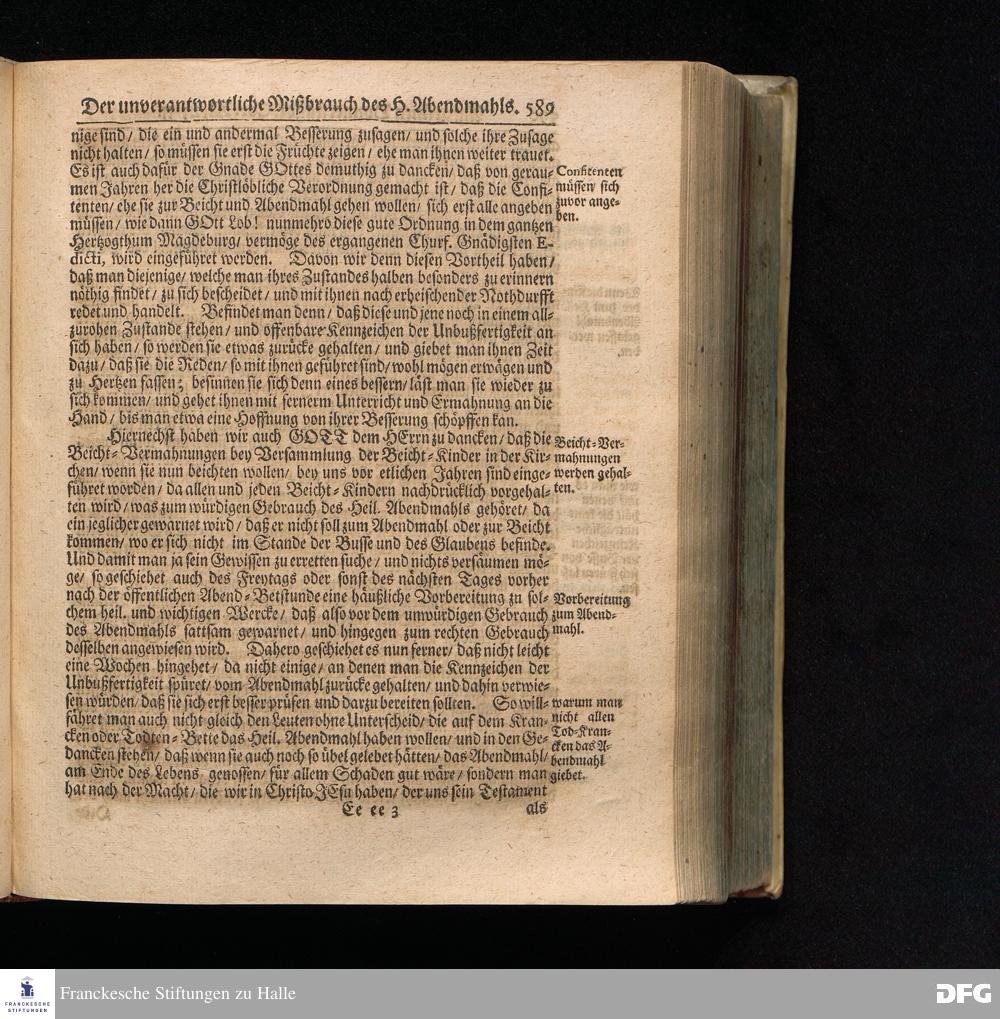 Der unverantwortliche Mißbrauch des H. Abendmahls. 589
nige sind/ die ein und andermal Besserung zusagen/ und solche ihre Zusage
nicht halten/ so müssen sie erst die Früchte zeigen/ ehe man ihnen weiter trauet.
Es ist auch dafür der Gnade GOttes demuthig zu dancken/ daß von gerau-
men Jahren her die Christlöbliche Verordnung gemacht ist/ daß die Confi-
tenten/ ehe sie zur Beicht und Abendmahl gehen wollen/ sich erst alle angeben
müssen/ wie dann GOtt Lob! nunmehro diese gute Ordnung in dem gantzen
Hertzogthum Magdeburg/ vermöge des ergangenen Churf. Gnädigsten E-
dicti, wird eingeführet werden. Davon wir denn diesen Vortheil haben/
daß man diejenige/ welche man ihres Zustandes halben besonders zu erinnern
nöthig findet/ zu sich bescheidet/ und mit ihnen nach erheischender Nothdurfft
redet und handelt. Befindet man denn/ daß diese und jene noch in einem all-
zurohen Zustande stehen/ und offenbare Kennzeichen der Unbußfertigkeit an
sich haben/ so werden sie etwas zurücke gehalten/ und giebet man ihnen Zeit
dazu/ daß sie die Reden/ so mit ihnen geführet sind/ wohl mögen erwägen und
zu Hertzen fassen; besinnen sie sich denn eines bessern/ läst man sie wieder zu
sich kommen/ und gehet ihnen mit fernerm Unterricht und Ermahnung an die
Hand/ bis man etwa eine Hoffnung von ihrer Besserung schöpffen kan.
Hiernechst haben wir auch GOTT dem HErrn zu dancken/ daß die
Beicht-Vermahnungen bey Versammlung der Beicht-Kinder in der Kir-
chen/ wenn sie nun beichten wollen/ bey uns vor etlichen Jahren sind einge-
führet worden/ da allen und jeden Beicht-Kindern nachdrücklich vorgehal-
ten wird/ was zum würdigen Gebrauch des Heil. Abendmahls gehöret/ da
ein jeglicher gewarnet wird/ daß er nicht soll zum Abendmahl oder zur Beicht
kommen/ wo er sich nicht im Stande der Busse und des Glaubens befinde.
Und damit man ja sein Gewissen zu erretten suche/ und nichts versäumen mö-
ge/ so geschiehet auch des Freytags oder sonst des nächsten Tages vorher
nach der öffentlichen Abend-Betstunde eine häußliche Vorbereitung zu sol-
chem heil. und wichtigen Wercke/ daß also vor dem unwürdigen Gebrauch
des Abendmahls sattsam gewarnet/ und hingegen zum rechten Gebrauch
desselben angewiesen wird. Dahero geschiehet es nun ferner/ daß nicht leicht
eine Wochen hingehet/ da nicht einige/ an denen man die Kennzeichen der
Unbußfertigkeit spüret/ vom Abendmahl zurücke gehalten/ und dahin verwie-
sen würden/ daß sie sich erst besser prüfen und darzu bereiten sollten. So will-
fähret man auch nicht gleich den Leuten ohne Unterscheid/ die auf dem Kran-
cken oder Todten-Bette das Heil. Abendmahl haben wollen/ und in den Ge-
dancken stehen/ daß wenn sie auch noch so übel gelebet hätten/ das Abendmahl/
am Ende des Lebens genossen/ für allem Schaden gut wäre/ sondern man
hat nach der Macht/ die wir in Christo JEsu haben/ der uns sein Testament
Ee ee 3
als
Confitenten
müssen sich
zuvor ange-
ben.
Beicht-Ver-
mahnungen
werden gehal-
ten.
Vorbereitung
zum Abend-
mahl.
warum man
nicht allen
Tod-Kran-
cken das A-
bendmahl
giebet.
FRANCKESCHE
STIFTUNGEN
Franckesche Stiftungen zu Halle
DFG